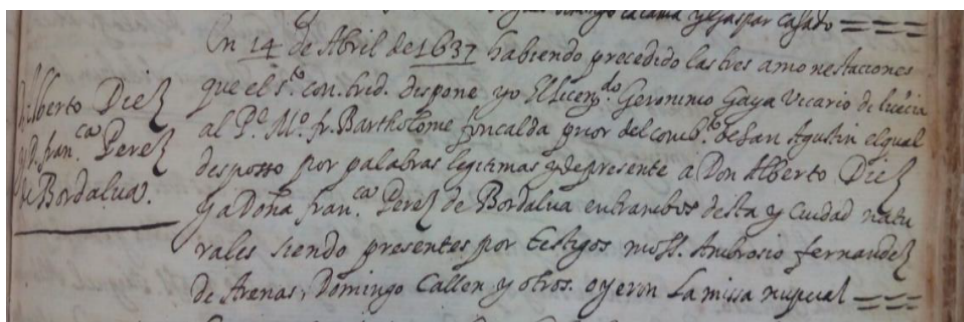 y Gaspar Casado
D. Alberto Diez
y D. fran.ca Perez
de Bordalua.
En 14 de Abril de 1637 habiendo precedido las tres amonestaciones
que el S.to con. trid. dispone yo El licen.do Geronimo Gaya Vicario di licēcia
al P.e M.o fr. Bartholome foncalda prior del comb.to de San Agustin el qual
desposso por palabras legitimas y de presente a Don Alberto Diez
y a Doña fran.ca Perez de Bordalua entrambos desta y Ciudad natu
rales siendo presentes por testigos moss. Ambrosio fernandez
de Arenas, Domingo Callen y otros. oyeron La missa nupcial